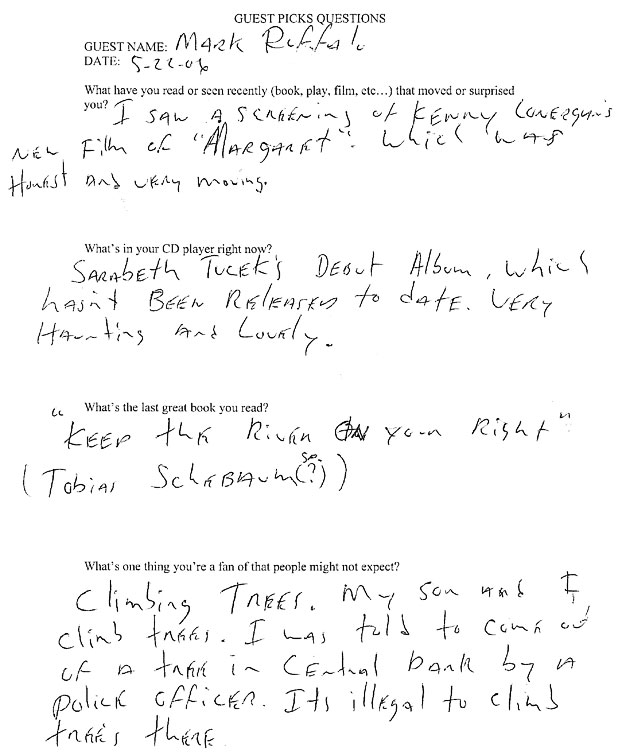 GUEST PICKS QUESTIONS
GUEST NAME: Mark Ruffalo
DATE: 5-22-06
What have you read or seen recently (book, play, film, etc...) that moved or surprised
you? I saw a screening of Kenny Lonergan's
new film of "Margaret". Which was
Honest and very moving.
What's in your CD player right now?
Sarabeth Tucek's Debut Album, which
hasn't Been Released to date. Very
Haunting and Lovely.
What's the last great book you read?
"Keep the River On your Right"
(Tobias Schebaum (sp.?))
What's one thing you're a fan of that people might not expect?
Climbing Trees. My son and I
climb trees. I was told to come out
of a tree in Central Park by a
police officer. Its illegal to climb
trees there